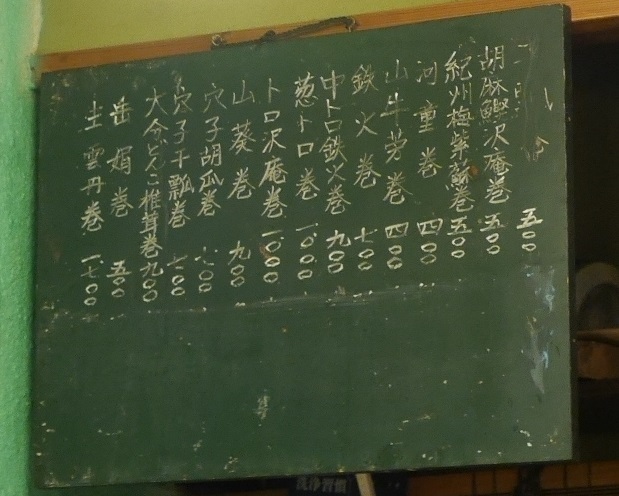 五〇〇
胡麻鰹沢庵巻 五〇〇
紀州梅紫蘇巻 五〇〇
河童巻 四〇〇
山牛蒡巻 四〇〇
鉄火巻 七〇〇
中トロ鉄火巻 九〇〇
葱トロ巻 一、〇〇〇
トロ沢庵巻 一、〇〇〇
山葵巻 九〇〇
穴子胡瓜巻 七〇〇
穴子干瓢巻 七〇〇
大分どんこ椎茸巻 九〇〇
岳娟巻 五〇〇
生雲丹巻 一、七〇〇
洗浄習慣